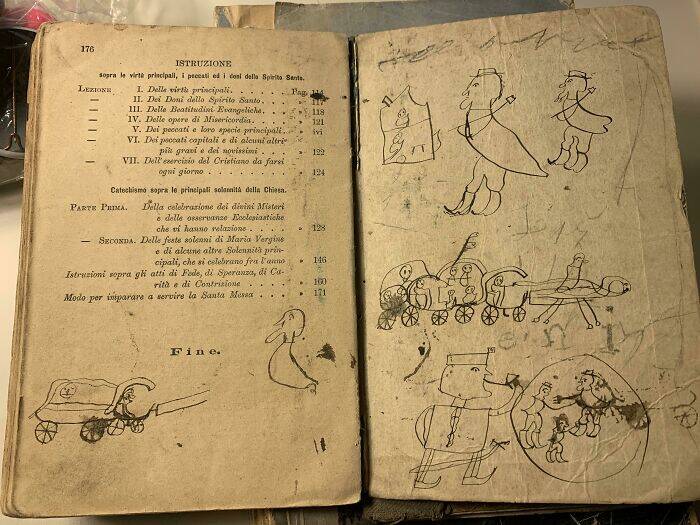 176
ISTRUZIONE
sopra le virtù principali, i peccati ed i doni dello Spirito Santo.
LEZIONE I. Delle virtù principali. . . . . . . . . Pag. 114
— II. Dei Doni dello Spirito Santo. . . . . . » 117
— III. Delle Beatitudini Evangeliche . . . . . » 118
— IV. Delle opere di Misericordia. . . . . . » 121
— V. Dei peccati e loro specie principali. . . » ivi
— VI. Dei peccati capitali e di alcuni altri
più gravi e dei novissimi . . . . . » 122
— VII. Dell'esercizio del Cristiano da farsi
ogni giorno . . . . . . . . . » 124
Catechismo sopra le principali solennità della Chiesa.
PARTE PRIMA. Della celebrazione dei divini Misteri
e delle osservanze Ecclesiastiche
che vi hanno relazione . . . . . » 128
— SECONDA. Delle feste solenni di Maria Vergine
e di alcune altre Solennità prin-
cipali, che si celebrano fra l'anno » 146
Istruzioni sopra gli atti di Fede, di Speranza, di Ca-
rità e di Contrizione . . . . . . . . » 160
Modo per imparare a servire la Santa Messa . . . . » 171
Fine.